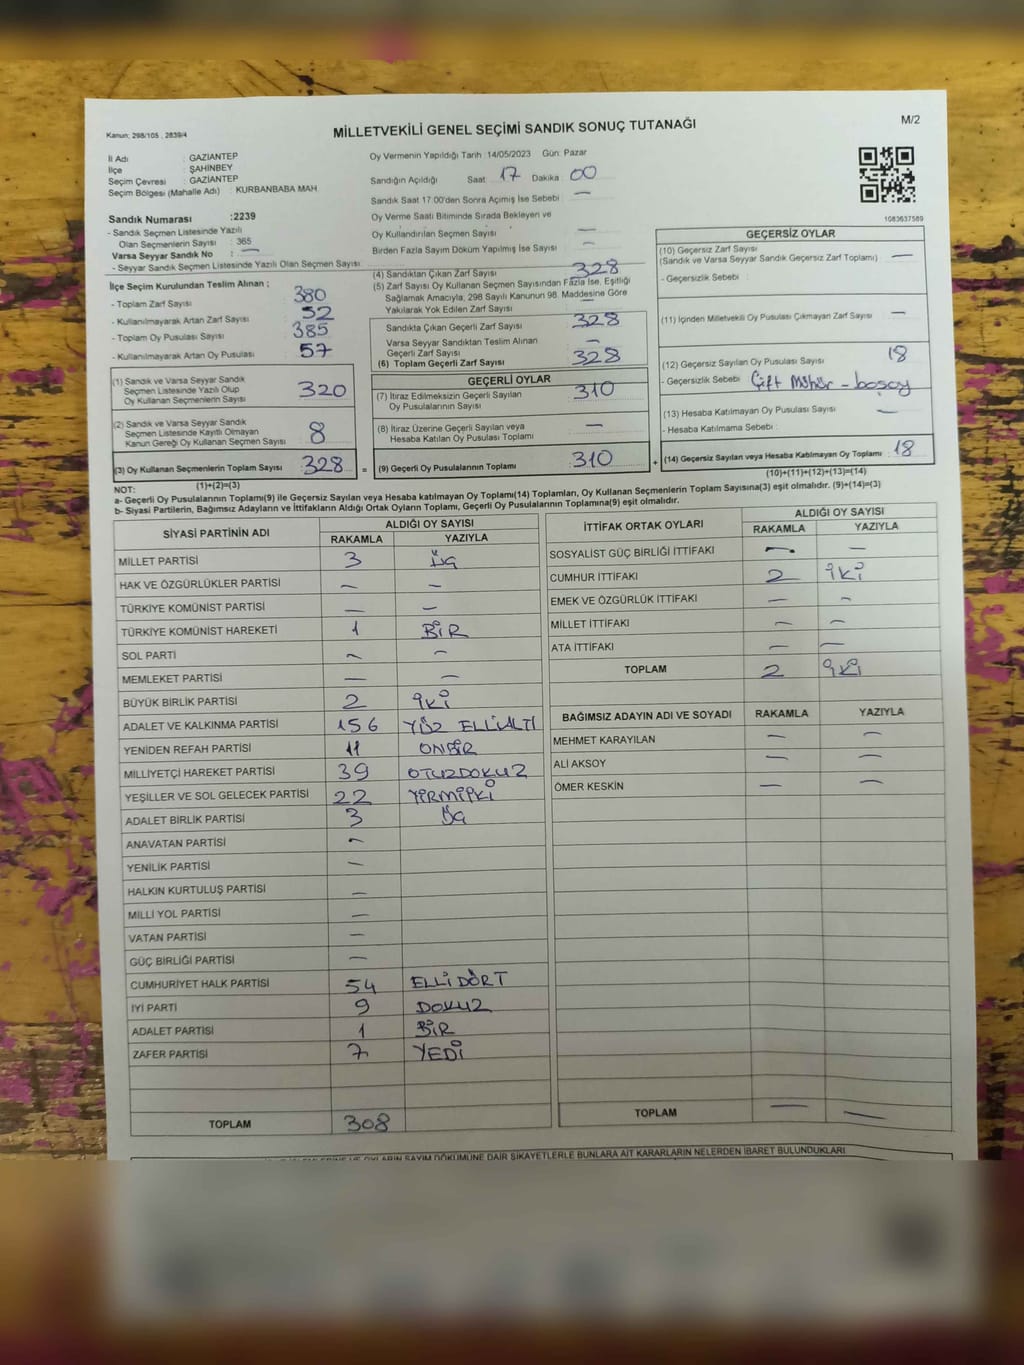 M/2
Kanun: 298/105 , 2839/4
MİLLETVEKİLİ GENEL SEÇİMİ SANDIK SONUÇ TUTANAĞI
İl Adı : GAZİANTEP
İlçe : ŞAHİNBEY
Seçim Çevresi : GAZİANTEP
Seçim Bölgesi (Mahalle Adı) : KURBANBABA MAH.
Sandık Numarası :2239
- Sandık Seçmen Listesinde Yazılı
Olan Seçmenlerin Sayısı : 365
Varsa Seyyar Sandık No : —
- Seyyar Sandık Seçmen Listesinde Yazılı Olan Seçmen Sayısı :
Oy Vermenin Yapıldığı Tarih :14/05/2023 Gün: Pazar
Sandığın Açıldığı Saat : 17 Dakika : 00
Sandık Saat 17.00'den Sonra Açımış İse Sebebi : —
Oy Verme Saati Bitiminde Sırada Bekleyen ve
Oy Kullandırılan Seçmen Sayısı : —
Birden Fazla Sayım Döküm Yapılmış İse Sayısı : —
1083637589
İlçe Seçim Kurulundan Teslim Alınan ;
- Toplam Zarf Sayısı : 380
- Kullanılmayarak Artan Zarf Sayısı : 52
- Toplam Oy Pusulası Sayısı : 385
- Kullanılmayarak Artan Oy Pusulası : 57
(1) Sandık ve Varsa Seyyar Sandık
Seçmen Listesinde Yazılı Olup
Oy Kullanan Seçmenlerin Sayısı : 320
(2) Sandık ve Varsa Seyyar Sandık
Seçmen Listesinde Kayıtlı Olmayan
Kanun Gereği Oy Kullanan Seçmen Sayısı : 8
(3) Oy Kullanan Seçmenlerin Toplam Sayısı : 328
(1)+(2)=(3)
(4) Sandıktan Çıkan Zarf Sayısı : 328
(5) Zarf Sayısı Oy Kullanan Seçmen Sayısından Fazla İse, Eşitliği
Sağlamak Amacıyla, 298 Sayılı Kanunun 98. Maddesine Göre
Yakılarak Yok Edilen Zarf Sayısı : —
Sandıkta Çıkan Geçerli Zarf Sayısı : 328
Varsa Seyyar Sandıktan Teslim Alınan
Geçerli Zarf Sayısı : —
(6) Toplam Geçerli Zarf Sayısı : 328
GEÇERLİ OYLAR
(7) İtiraz Edilmeksizin Geçerli Sayılan
Oy Pusulalarının Sayısı : 310
(8) İtiraz Üzerine Geçerli Sayılan veya
Hesaba Katılan Oy Pusulası Toplamı : —
= (9) Geçerli Oy Pusulalarının Toplamı : 310
GEÇERSİZ OYLAR
(10) Geçersiz Zarf Sayısı
(Sandık ve Varsa Seyyar Sandık Geçersiz Zarf Toplamı) : —
- Geçersizlik Sebebi :
(11) İçinden Milletvekili Oy Pusulası Çıkmayan Zarf Sayısı : —
(12) Geçersiz Sayılan Oy Pusulası Sayısı : 18
- Geçersizlik Sebebi : Çift Mühür - boş oy
(13) Hesaba Katılmayan Oy Pusulası Sayısı : —
- Hesaba Katılmama Sebebi :
+ (14) Geçersiz Sayılan veya Hesaba Katılmayan Oy Toplamı : 18
(10)+(11)+(12)+(13)=(14)
NOT:
a- Geçerli Oy Pusulalarının Toplamı(9) ile Geçersiz Sayılan veya Hesaba katılmayan Oy Toplamı(14) Toplamları, Oy Kullanan Seçmenlerin Toplam Sayısına(3) eşit olmalıdır. (9)+(14)=(3)
b- Siyasi Partilerin, Bağımsız Adayların ve İttifakların Aldığı Ortak Oyların Toplamı, Geçerli Oy Pusulalarının Toplamına(9) eşit olmalıdır.
SİYASİ PARTİNİN ADI ALDIĞI OY SAYISI
RAKAMLA YAZIYLA
MİLLET PARTİSİ 3 Üç
HAK VE ÖZGÜRLÜKLER PARTİSİ — —
TÜRKİYE KOMÜNİST PARTİSİ — —
TÜRKİYE KOMÜNİST HAREKETİ 1 BİR
SOL PARTİ — —
MEMLEKET PARTİSİ — —
BÜYÜK BİRLİK PARTİSİ 2 İKİ
ADALET VE KALKINMA PARTİSİ 156 YÜZ ELLİALTI
YENİDEN REFAH PARTİSİ 11 ONBİR
MİLLİYETÇİ HAREKET PARTİSİ 39 OTUZDOKUZ
YEŞİLLER VE SOL GELECEK PARTİSİ 22 YİRMİİKİ
ADALET BİRLİK PARTİSİ 3 Üç
ANAVATAN PARTİSİ —
YENİLİK PARTİSİ —
HALKIN KURTULUŞ PARTİSİ —
MİLLİ YOL PARTİSİ —
VATAN PARTİSİ —
GÜÇ BİRLİĞİ PARTİSİ —
CUMHURİYET HALK PARTİSİ 54 ELLİDÖRT
İYİ PARTİ 9 DOKUZ
ADALET PARTİSİ 1 BİR
ZAFER PARTİSİ 7 YEDİ
TOPLAM 308
İTTİFAK ORTAK OYLARI ALDIĞI OY SAYISI
RAKAMLA YAZIYLA
SOSYALİST GÜÇ BİRLİĞİ İTTİFAKI — —
CUMHUR İTTİFAKI 2 İKİ
EMEK VE ÖZGÜRLÜK İTTİFAKI — —
MİLLET İTTİFAKI — —
ATA İTTİFAKI — —
TOPLAM 2 İKİ
BAĞIMSIZ ADAYIN ADI VE SOYADI RAKAMLA YAZIYLA
MEHMET KARAYILAN — —
ALİ AKSOY — —
ÖMER KESKİN — —
TOPLAM — —
OYLARIN SAYIM DÖKÜMÜNE DAİR ŞİKAYETLERLE BUNLARA AİT KARARLARIN NELERDEN İBARET BULUNDUKLARI